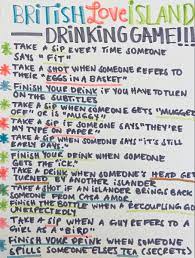 BRITISH LOVE ISLAND
—DRINKING GAME!!!
TAKE A SIP EVERY TIME SOMEONE
SAYS "FIT"
TAKE A SHOT WHEN SOMEONE REFERS TO
THEIR "EGGS IN A BASKET"
FINISH YOUR DRINK IF YOU HAVE TO TURN
ON THE SUBTITLES
TAKE A SIP WHEN SOMEONE GETS "MUGGED
OFF" or is "MUGGY"
TAKE A SIP IF SOMEONE SAYS "THEY'RE
MY TYPE ON PAPER"
TAKE A SIP WHEN SOMEONE SAYS "IT'S STILL
EARLY DAYS."
FINISH YOUR DRINK WHEN SOMEONE
GETS THE "ICK."
TAKE A DRINK WHEN SOMEONE'S HEAD GETS
TURNED BY ANOTHER ISLANDER
TAKE A SHOT IF AN ISLANDER BRINGS BACK
SOMEONE FROM CASA AMOR
FINISH THE BOTTLE WHEN A RECOUPLING GOES
UNEXPECTEDLY
TAKE A SIP WHEN A GUY REFERS TO A
GIRL AS A "BIRD"
FINISH YOUR DRINK WHEN SOMEONE
SPILLS SOMEONE ELSES TEA (SECRETS)